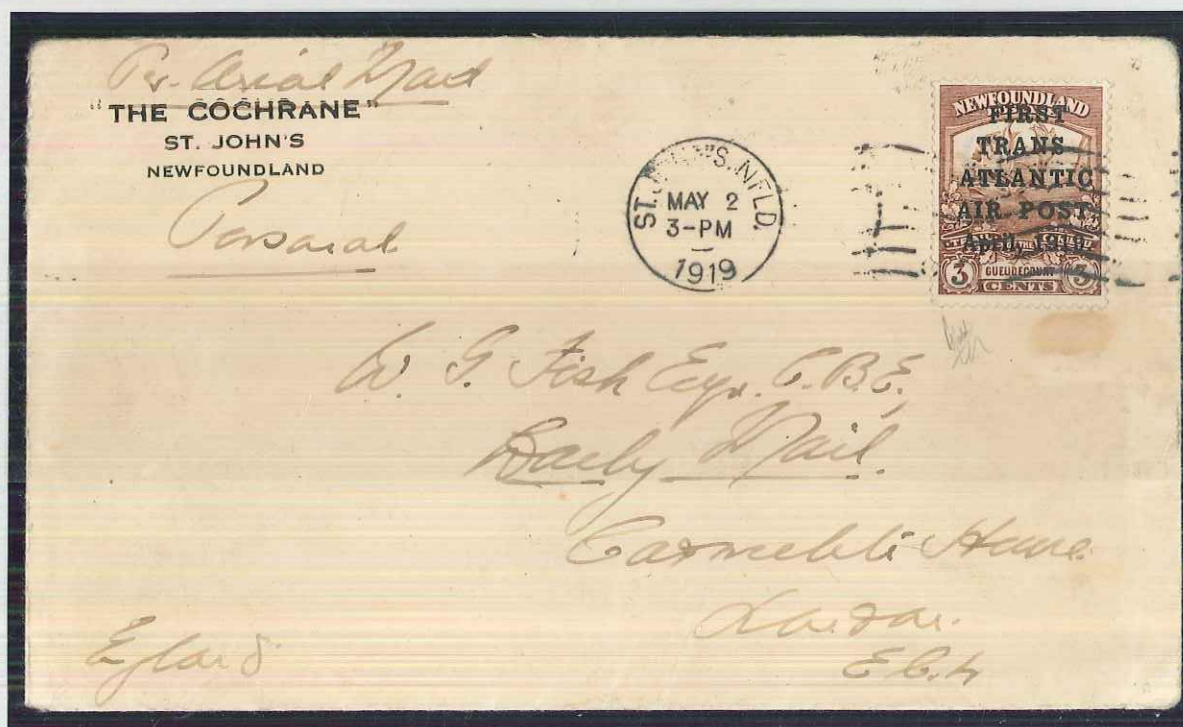 Per Aerial Mail
"THE COCHRANE"
ST. JOHN'S
NEWFOUNDLAND
Personal
ST. JOHN'S. NFLD.
MAY 2
3-PM
1919
NEWFOUNDLAND
FIRST
TRANS
ATLANTIC
AIR POST
April, 1919
GUEUDECOURT
3 CENTS 3
W. G. Fish Esqr. C.B.E.
Daily Mail.
Carmelite House
London.
E.C.4
England